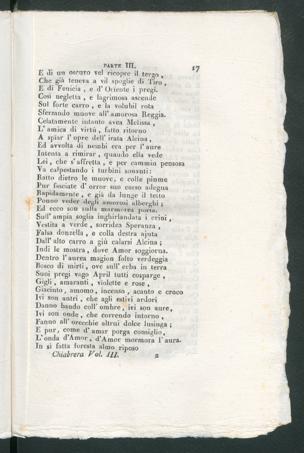 PARTE III. 17
E di un oscuro vel ricopre il tergo,
Che già teneva a vil spoglie di Tiro,
E di Fenicia, e d'Oriente i pregi.
Così negletta, e lagrimosa ascende
Sul forte carro, e la volubil rota
Sferzando muove all'amorosa Reggia.
Celatamente intanto avea Melissa,
L'amica di virtù, fatto ritorno
A spiar l'opre dell'irata Alcina,
Ed avvolta di nembi era per l'aure
Intenta a rimirar, quando ella vede
Lei, che s'affretta, e per cammin pensosa
Va calpestando i turbini sonanti:
Ratto dietro le muove, e colle piume
Pur fasciate d'orror suo corso adegua
Rapidamente, e già da lunge il tetto
Ponno veder degli amorosi alberghi;
Ed ecco son sulla marmorea porta.
Sull'ampia soglia inghirlandata i crini,
Vestita a verde, sorridea Speranza,
Falsa donzella, e colla destra ajuta
Dall'alto carro a giù calarsi Alcina;
Indi le mostra, dove Amor soggiorna.
Dentro l'aurea magion folto verdeggia
Bosco di mirti, ove sull'erba in terra
Suoi pregi vago April tutti cosparge,
Gigli, amaranti, violette e rose,
Giacinto, amomo, incenso, acanto e croco
Ivi son antri, che agli estivi ardori
Danno bando coll'ombre, ivi son aure,
Ivi son onde, che correndo intorno,
Fanno all'orecchie altrui dolce lusinga;
E pur, come d'amar porga consiglio,
L'onda d'Amor, d'Amor mormora l'aura.
In sì fatta foresta almo riposo
Chiabrera Vol. III. 2